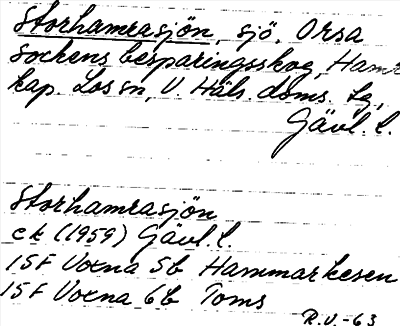 Storhamrasjön, sjö, Orsa
sockens besparingsskog, Hamra
kap. Los sn, V. Häls. doms. lg,
Gävl. l.
Storhamrasjön
ek (1959) Gävl. l.
15F Voxna 5b Hammarkesen
15F Voxna 6b Toms
R.V.-63